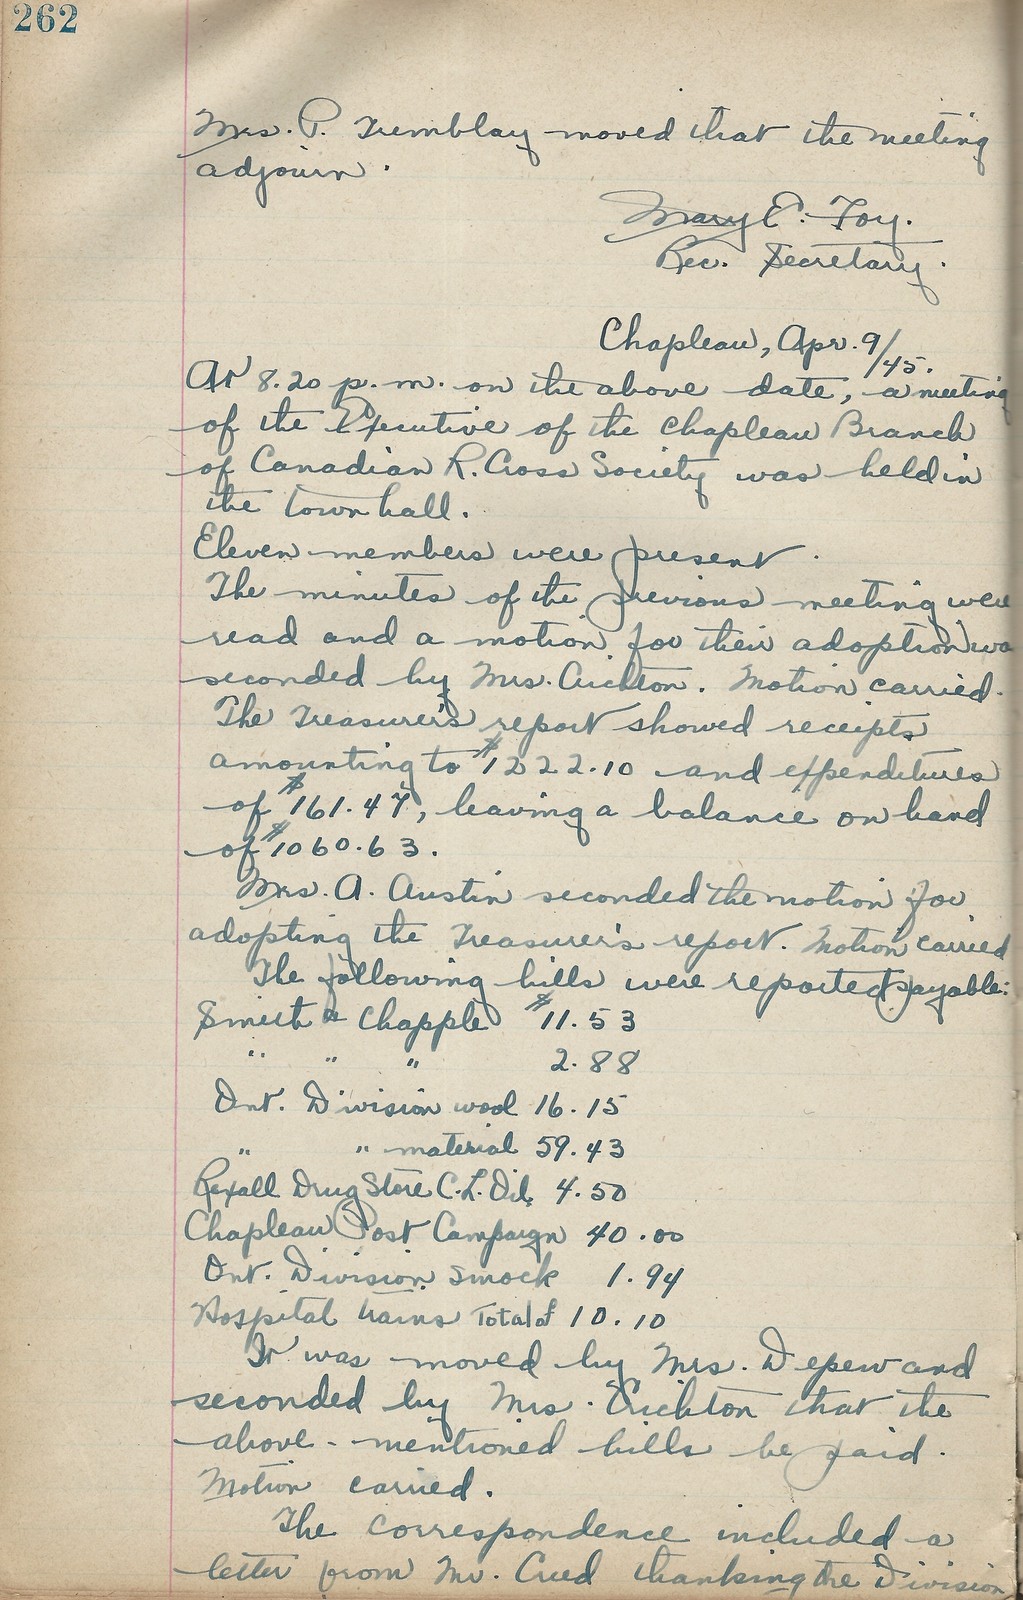 262
Mrs. P. Tremblay moved that the meeting
adjourn.
Mary E. Foy.
Rec. Secretary.
Chapleau, Apr. 9/45.
At 8.20 p.m. on the above date, a meeting
of the Executive of the Chapleau Branch
of Canadian R. Cross Society was held in
the town hall.
Eleven members were present.
The minutes of the previous meeting were
read and a motion for their adoption wa
seconded by Mrs. Crichton. Motion carried.
The Treasurer's report showed receipts
amounting to $1222.10 and expenditures
of $161.47, leaving a balance on hand
of $1060.63.
Mrs. A. Austin seconded the motion for
adopting the Treasurer's report. Motion carried
The following bills were reported payable:
Smith & Chapple $11.53
" " " 2.88
Ont. Division wool 16.15
" " material 59.43
Rexall Drug Store C.L. Oil, 4.50
Chapleau Post Campaign 40.00
Ont. Division smock 1.94
Hospital trains Total of 10.10
It was moved by Mrs. Depew and
seconded by Mrs. Crichton that the
above-mentioned bills be paid.
Motion carried.
The correspondence included a
letter from Mr. thanking the Division